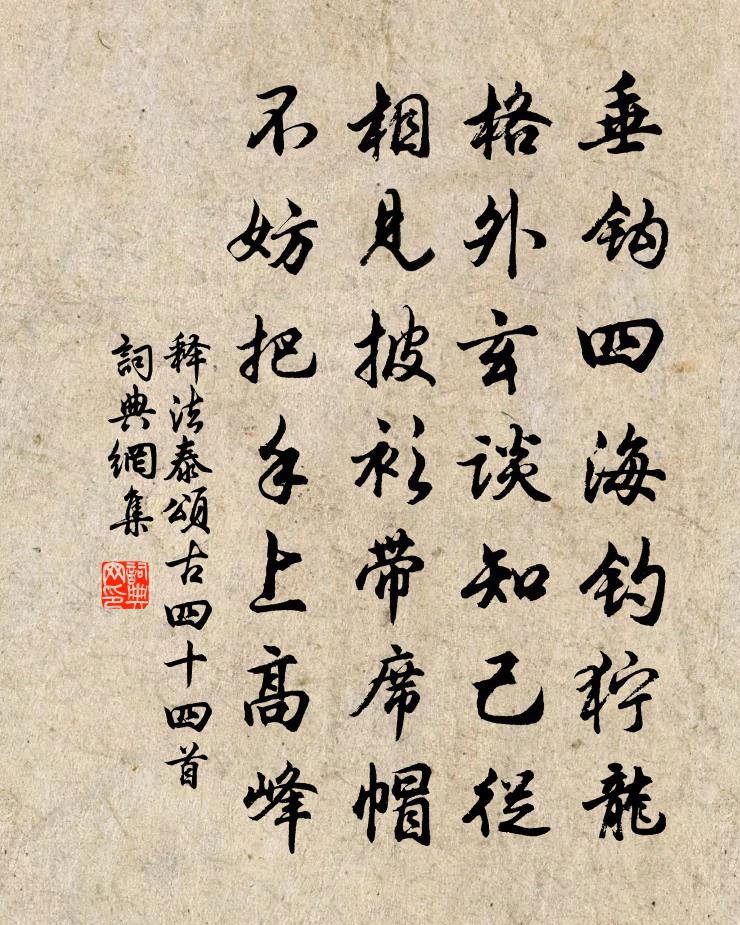 垂钩四海钓狞龍
格外玄谈知己從
相見披衫带席帽
不妨把手上高峰
释法泰頌古四十四首
詞典網集
詞典网印